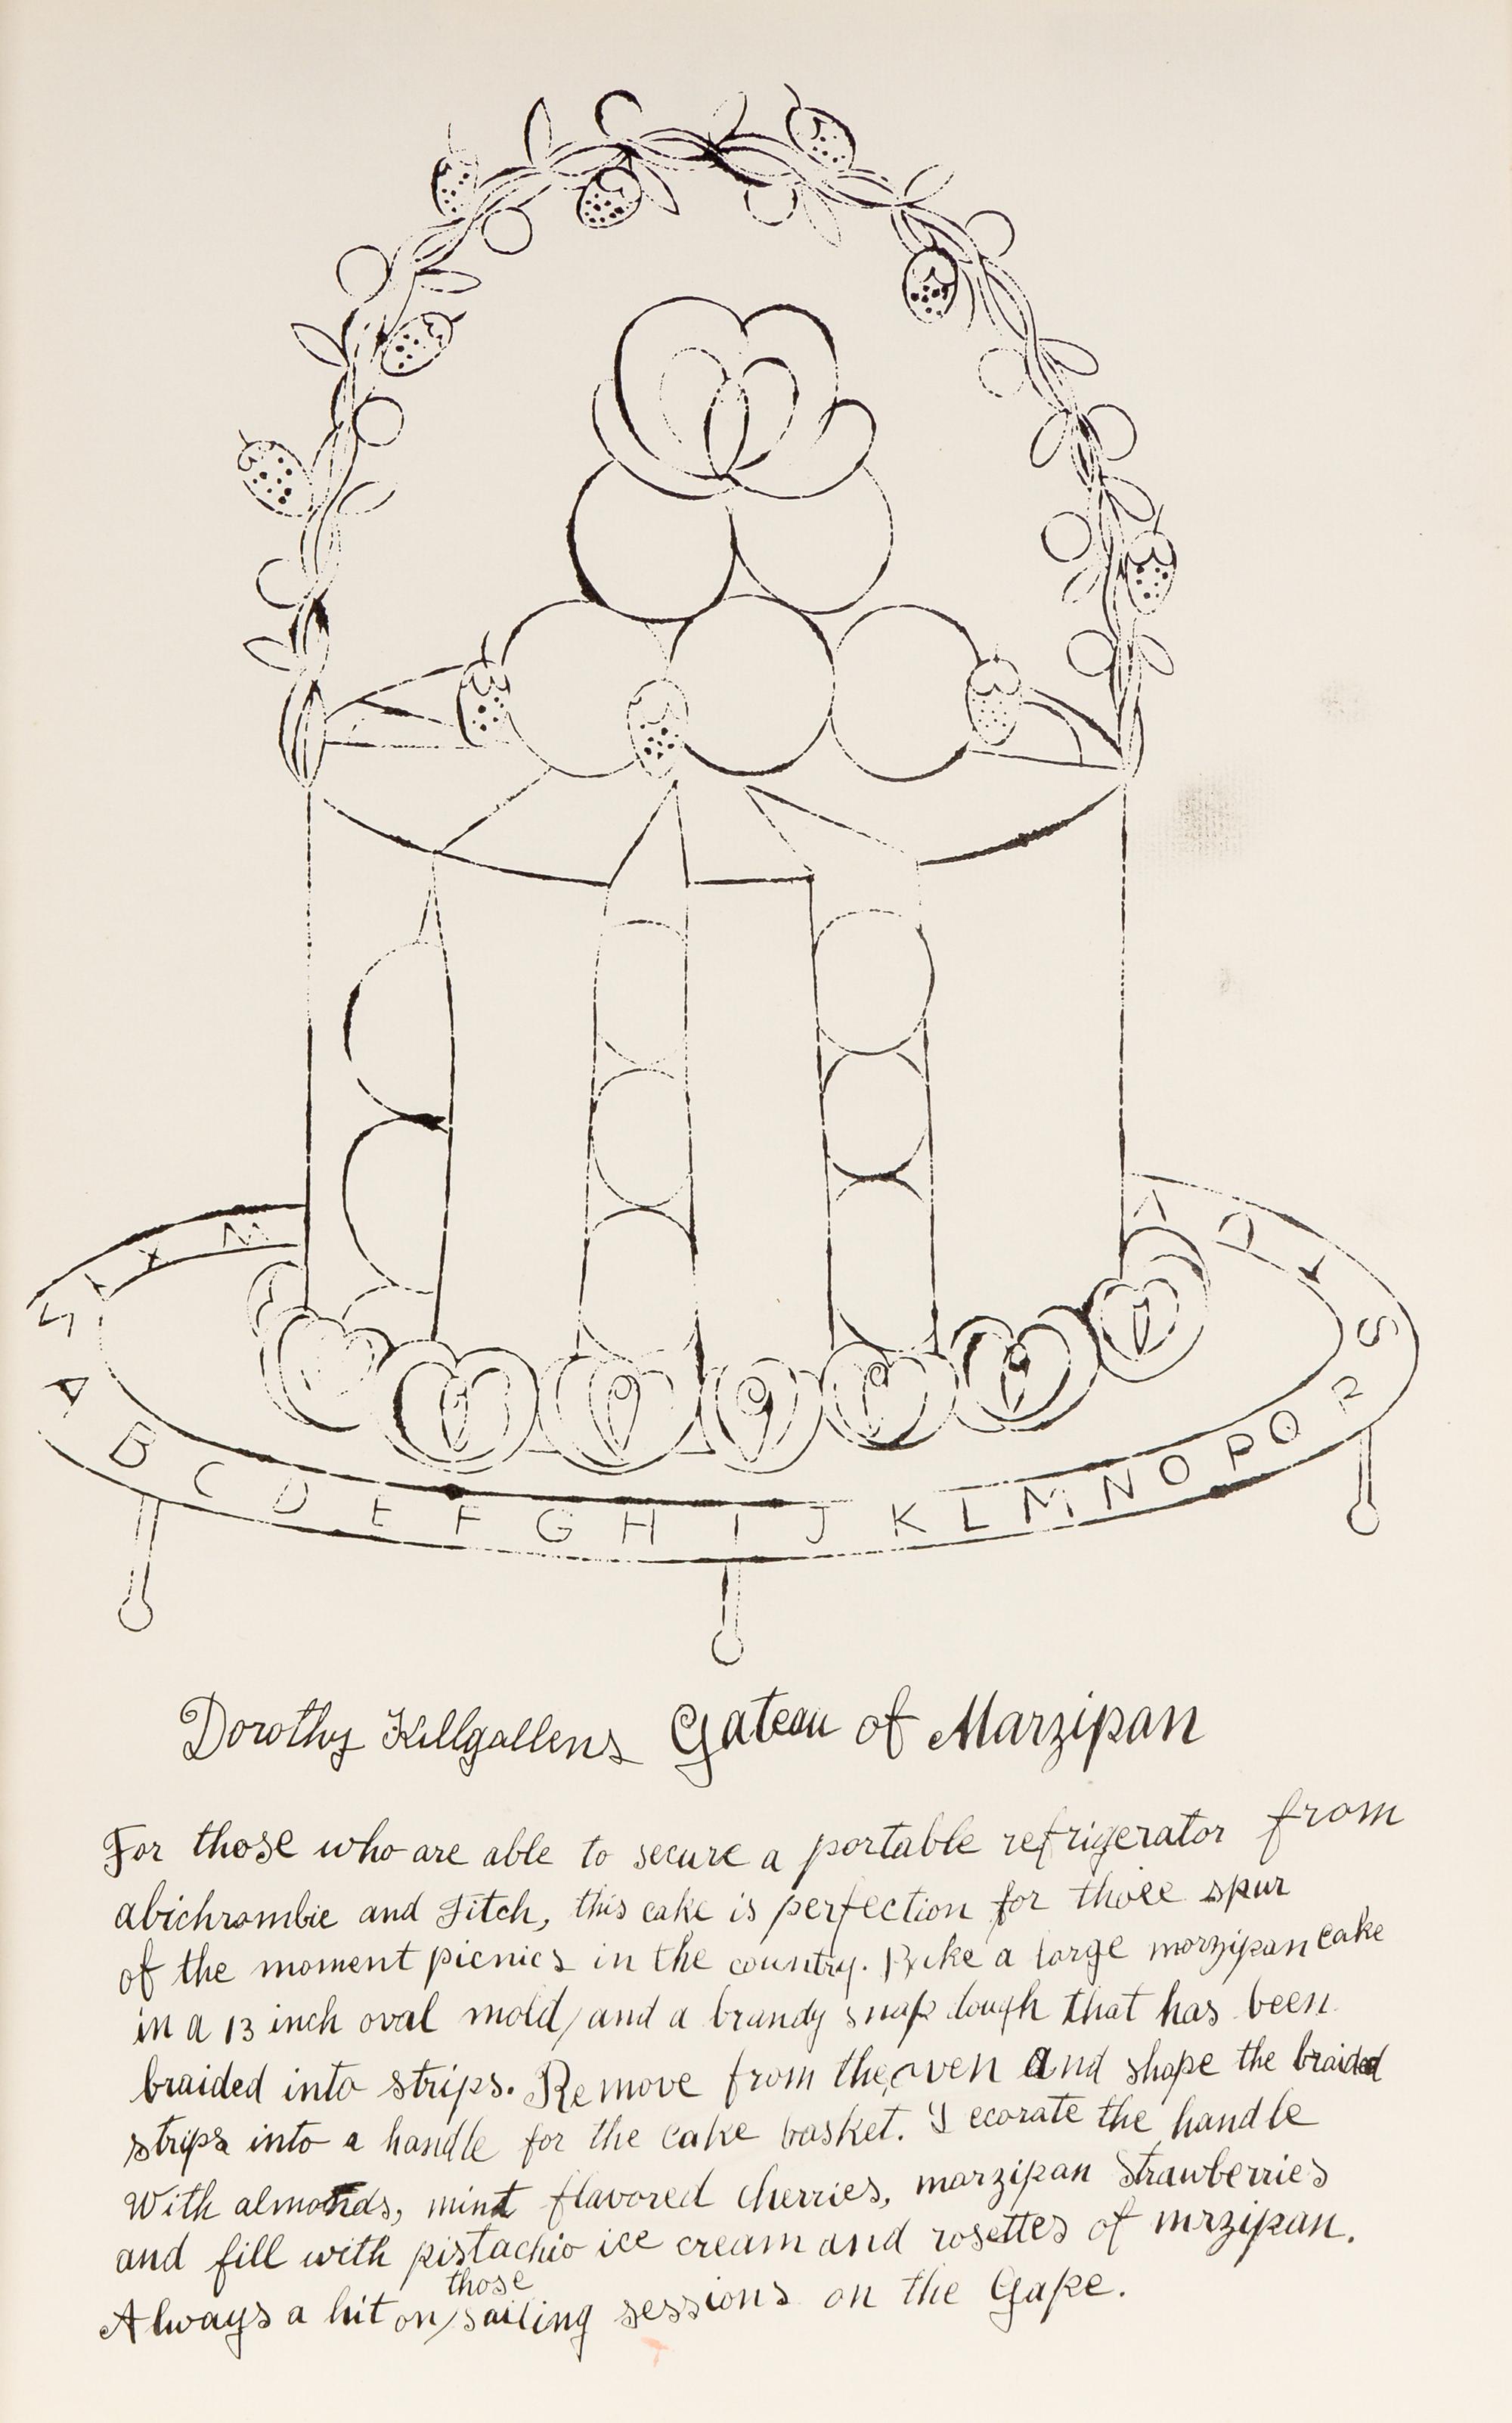 A B C D E F G H I J K L M N O P Q R S
Dorothy Killgallens Gateau of Marzipan
For those who are able to secure a portable refrigerator from
abichrombie and Fitch, this cake is perfection for those spur
of the moment picnics in the country. Bake a large marzipan cake
in a 13 inch oval mold, and a brandy snap dough that has been
braided into strips. Remove from the oven and shape the braided
strips into a handle for the cake basket. Decorate the handle
With almonds, mint flavored cherries, marzipan strawberries
and fill with pistachio ice cream and rosettes of mrzipan.
those
Always a hit on, sailing sessions on the Gape.